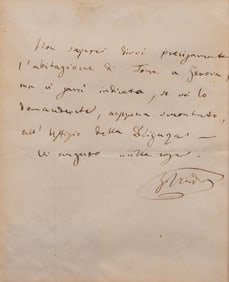 Non saprei dirvi precisamente
l'abitazione di Torre a Genova,
ma vi sarà indicata, se voi lo
domanderete, appena smontato,
all'Uffizio della
Vi auguro mille cose.